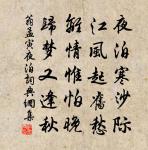 夜泊寒沙際
江風起舊愁
離情惟怕晚
歸夢又逢秋
翁孟寅夜泊詞典網集